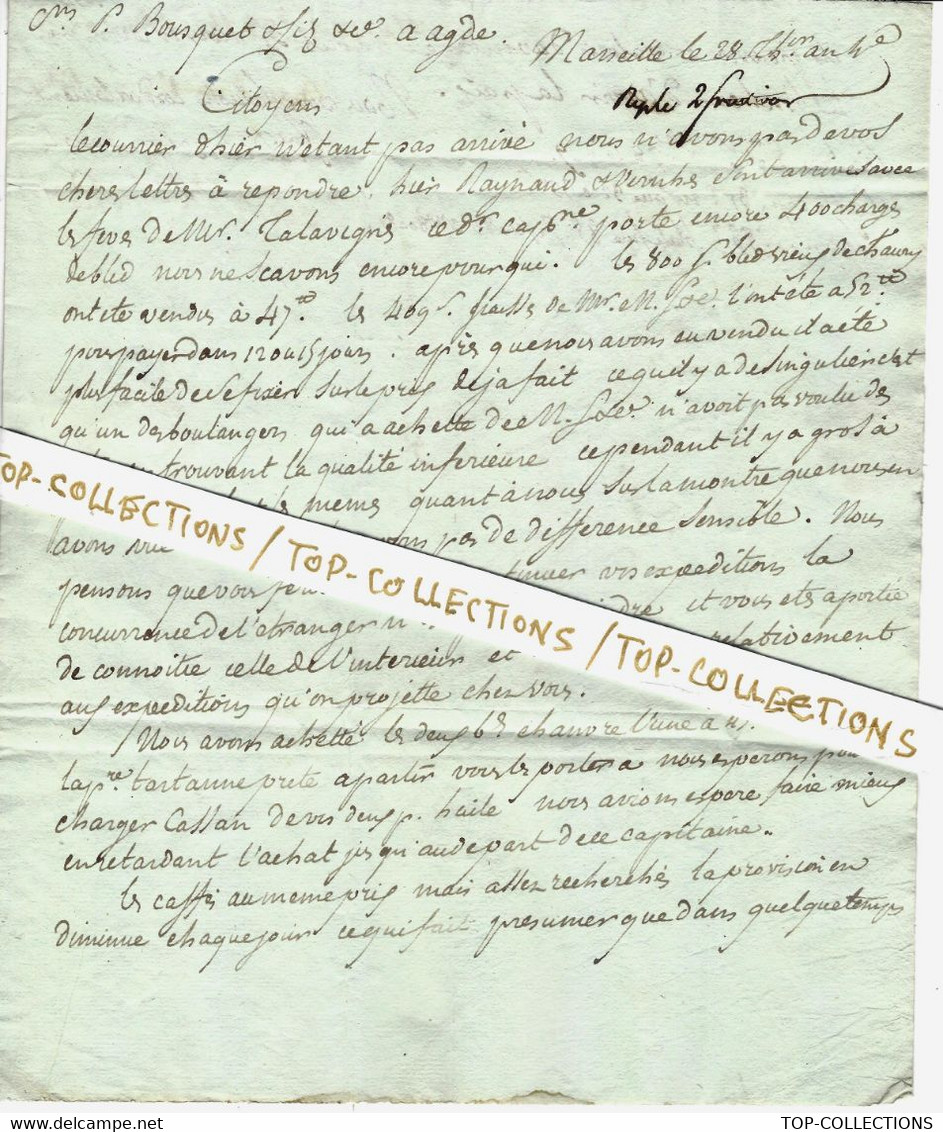 Cns P. Bousquet & fils & Ce. a agde.
Marseille le 28 Thor an 4e
Citoyens
Reple 2 fructidor
Le courrier d'hier n'etant pas arrivé nous n'avons pas de vos
cheres lettres à repondre. hier Raynaud & Vernhes sont arrivés avec
les feves de Mr. Talavigne ce dr. capne. porte encore 400 charges
de bled nous ne scavons encore pour qui. les 800 s. bled vieux de chauvry
ont ete vendus à 47. les 469 s. de Mr. M. l'ont été a 52.
pour payer dans 12 ou 15 jours. après que nous avons eu vendu il a ete
plus facile de se fixer sur le prix deja fait ce qu'il y a de singulier c'est
qu'un des boulangers qui a achetté de M. n'avoit pas voulu des
trouvant la qualité inferieure cependant il y a gros à
memes quant à nous sur la montre que nous en
avons vu pas de difference sensible. Nous
pensons que vous tinuer vos expeditions la
concurrence de l'etranger n' dre et vous etes a portée
de connoitre celle de l'interieur et relativement
aux expeditions qu'on projette chez vous.
Nous avons achetté les deux bs chanvre l'une a
la pre. tartanne prete a partir vous les portera nous esperons
charger Cassan de vos deux p. huile nous avions esperé faire mieux
en retardant l'achat jusqu'au depart de ce capitaine.
les caffés au meme prix mais assez recherchés la provision en
diminue chaque jour ce qui fait presumer que dans quelque temps
TOP-COLLECTIONS / TOP-COLLECTIONS / TOP-COLLECTIONS
TOP-COLLECTIONS